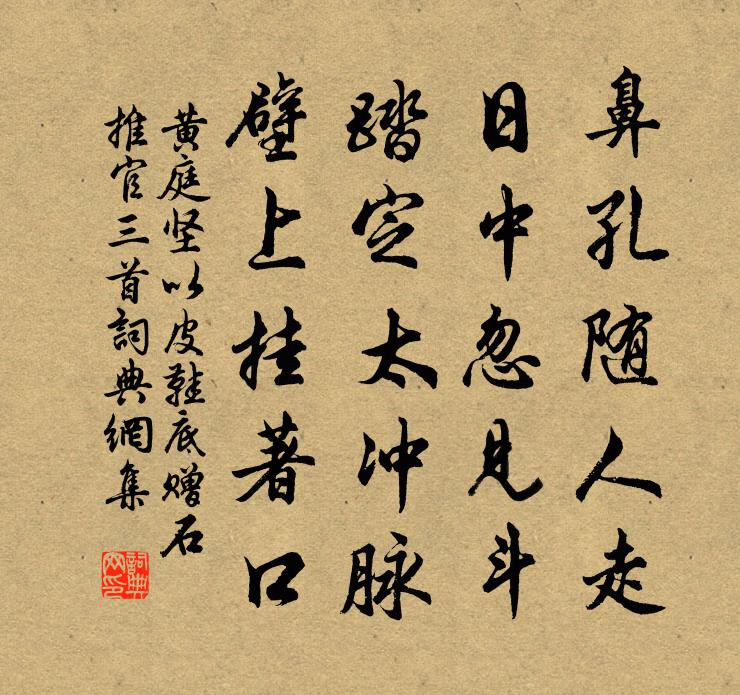 鼻孔随人走
日中忽见斗
踏定太冲脉
壁上挂著口
黄庭坚以皮鞋底赠石
推官三首詞典網集
詞典
网印